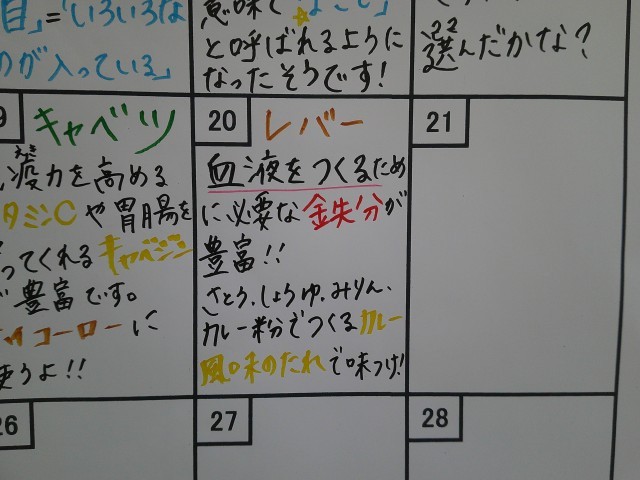 目」=「いろいろな
のが入っている」
意味で「なごし」
と呼ばれるように
なったそうです!
選んだかな?
キャベツ
疫力を高める
タミンCや胃腸を
ってくれるキャベジン
豊富です。
イコーローに
使うよ!!
20 レバー
血液をつくるため
に必要な鉄分が
豊富!!
さとう、しょうゆ、みりん、
カレー粉でつくるカレー
風味のたれで味つけ!
21
26
27
28